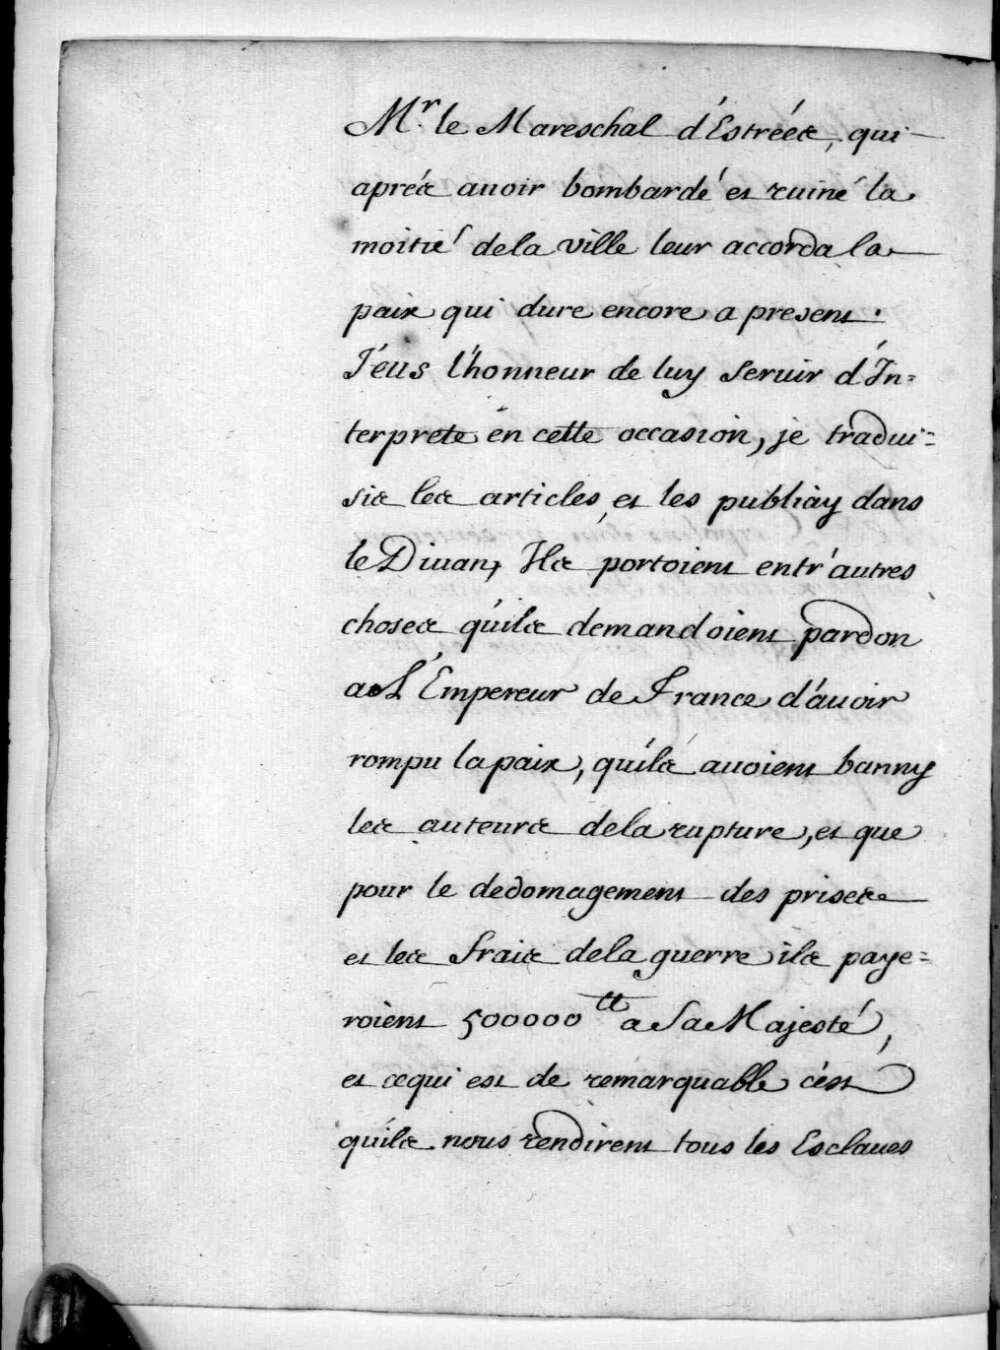 Mr. le Mareschal d'Estrées, qui
aprés auoir bombardé et ruiné la
moitié de la ville leur accorda la
paix qui dure encore a present.
J'éus l'honneur de luy seruir d'In=
terprete en cette occasion, je tradui=
sis les articles, et les publiay dans
le Diuan, Ils portoient entr'autres
choses qu'ils demandoient pardon
a L'Empereur de France d'auoir
rompu la paix, qu'ils auoient banny
les auteurs de la rupture, et que
pour le dedomagement des prises
et les frais de la guerre ils paye=
roient 500000 tt a Sa Majesté,
et cequi est de remarquable c'est
qu'ils nous rendirent tous les Esclaues